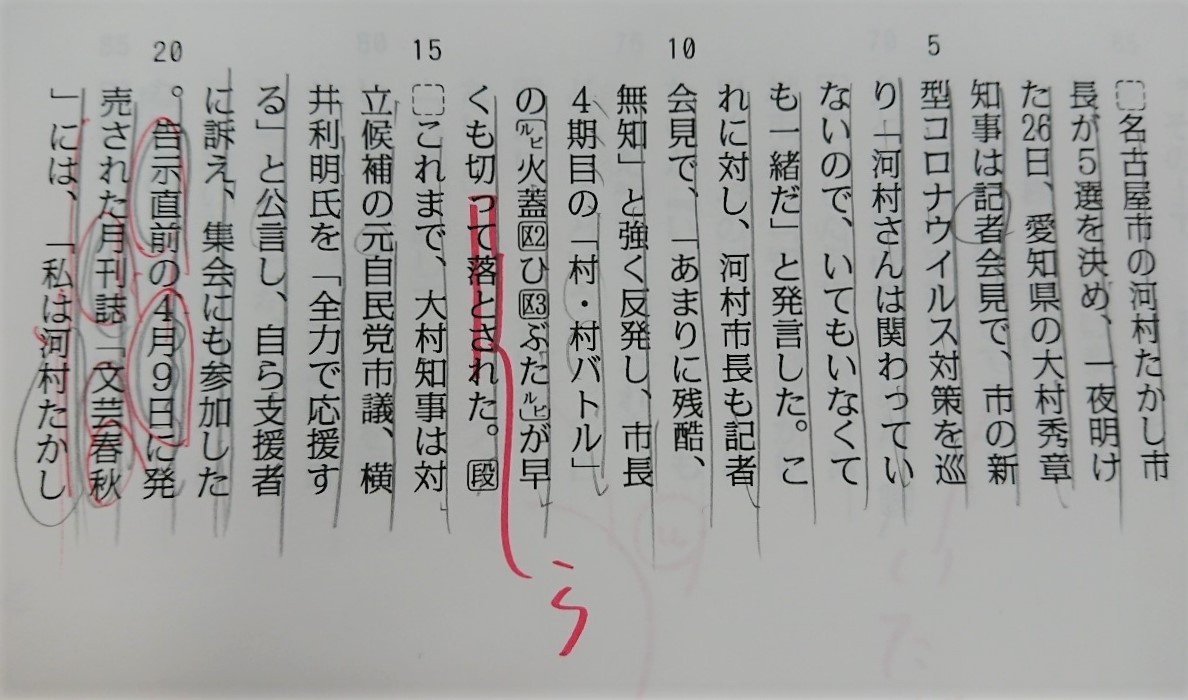 名古屋市の河村たかし市
長が5選を決め、一夜明け
た26日、愛知県の大村秀章
知事は記者会見で、市の新
5
型コロナウイルス対策を巡
り「河村さんは関わってい
ないので、いてもいなくて
も一緒だ」と発言した。こ
れに対し、河村市長も記者
10
会見で、「あまりに残酷、
無知」と強く反発し、市長
4期目の「村・村バトル」
の[ルビ火蓋区2ひ区3ぶたルビ]が早
くも切って落とされた。段
ら
15
これまで、大村知事は対
立候補の元自民党市議、横
井利明氏を「全力で応援す
る」と公言し、自ら支援者
に訴え、集会にも参加した
20
。告示直前の4月9日に発
売された月刊誌「文芸春秋
」には、「私は河村たかし